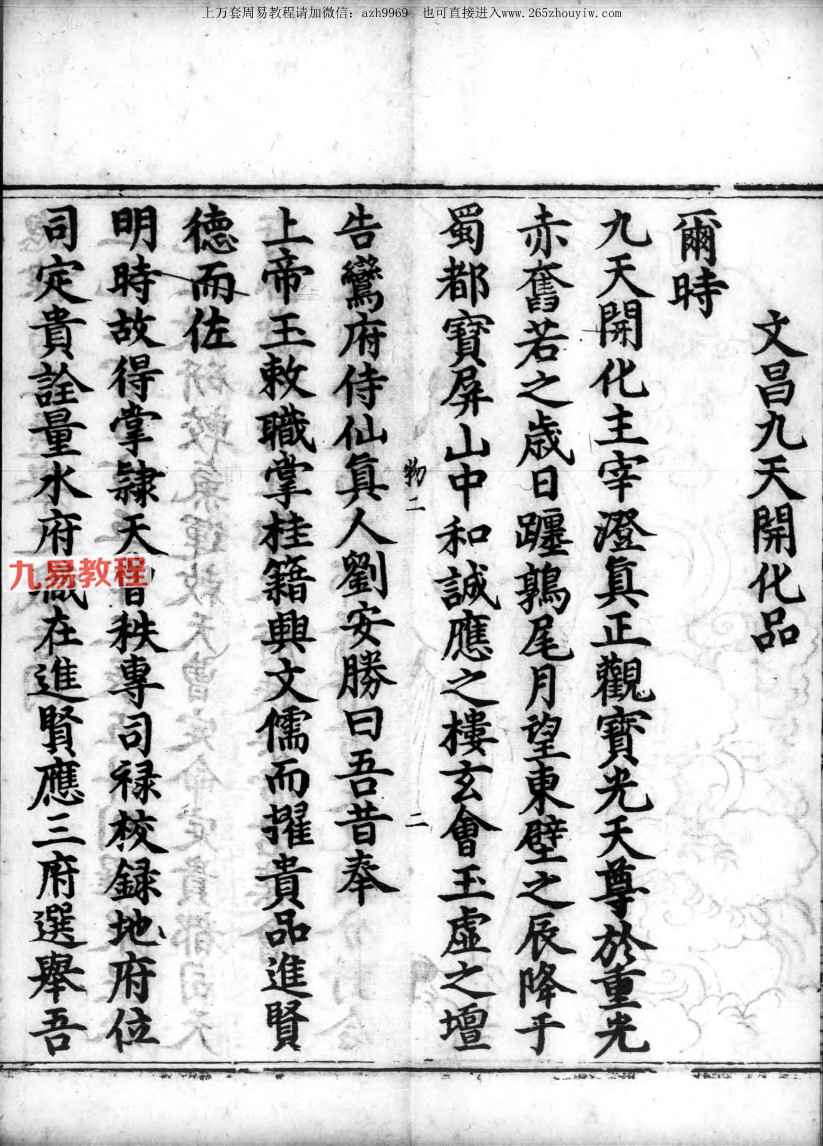 上万套周易教程请加微信：azh9969 也可直接进入www.265zhouyiw.com
文昌九天開化品
爾時
九天開化主宰澄真正觀寶光天尊於重光
赤奮若之歲日躔鶉尾月望東壁之辰降于
蜀都寶屏山中和誠應之樓玄會玉虛之壇
物二 二
告鸞府侍仙真人劉安勝曰吾昔奉
上帝玉敕職掌桂籍興文儒而擢貴品進賢
德而佐
明時故得掌隸天曹秩專司禄校録地府位
司定貴詮量水府職在進賢應三府選舉吾
九易教程